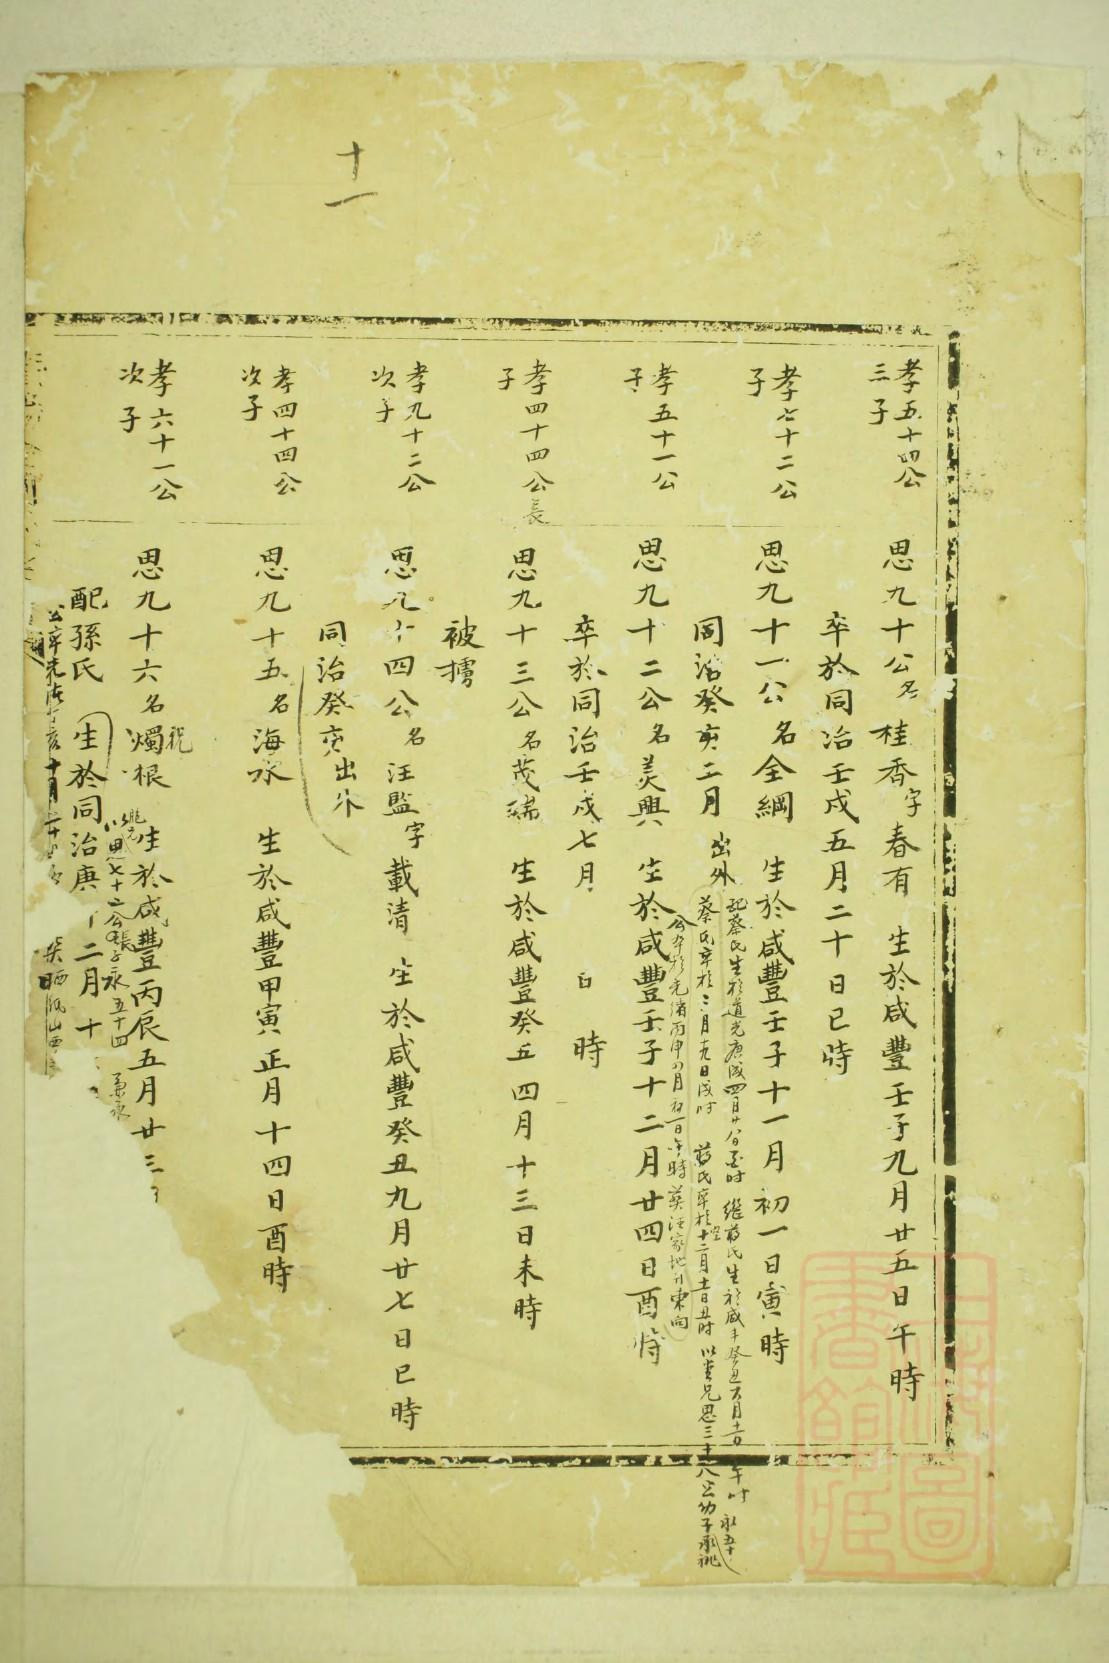 十一
孝五十四公
三子
思九十公名桂香字春有 生於咸豐壬子九月廿五日午時
卒於同治壬戌五月二十日巳時
孝七十二公
子
思九十一公名全綱 生於咸豐壬子十一月初一日寅時
同治癸亥二月出外
配蔡氏生於道光庚戌四月廿八日 時 繼蔣氏生於咸丰癸丑六月 午时 永五十
蔡氏卒於三月十九日戌时 蔣氏卒於十二月 日丑时 以堂兄思三十八公幼子承祧
孝五十一公
子
思九十二公名美興 生於咸豐壬子十二月廿四日酉時
公卒於光緒丙申 月初一日午時葬汪家地 東向
卒於同治壬戌七月 日 時
孝四十四公長
子
思九十三公名茂瑞 生於咸豐癸丑四月十三日未時
被擄
孝九十二公
次子
思九十四公名汪監字載清 生於咸豐癸丑九月廿七日巳時
同治癸亥出外
孝四十四公
次子
思九十五名海水 生於咸豐甲寅正月十四日酉時
孝六十一公
次子
思九十六名燭根 生於咸豐丙辰五月廿三
祝
以思七十二公長子永五十四 承
配孫氏 生於同治庚 二月十
公卒光緒 亥十月二十
上海圖書館藏